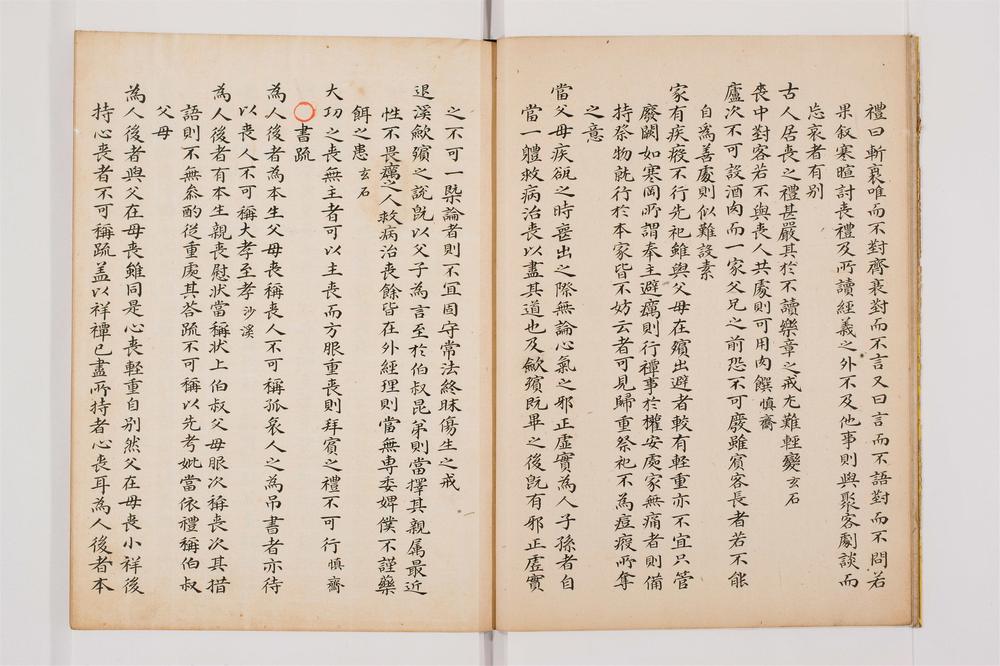 禮曰斬衰唯而不對齊衰對而不言又曰言而不語對而不問若
果叙寒暄討喪禮及所讀經義之外不及他事則與聚客劇談而
忘哀者有別
古人居喪之禮甚嚴其於不讀樂章之戒尤難輕變玄石
喪中對客若不與喪人共處則可用肉饌愼齋
廬次不可設酒肉而一家父兄之前恐不可廢雖賓客長者若不能
自爲善處則似難設素
家有疾疫不行先祀雖與父母在殯出避者較有輕重亦不宜只管
廢闕如寒岡所謂奉主避癘則行禫事於權安處家無痛者則備
持祭物就行於本家皆不妨云者可見歸重祭祀不為痘疫所奪
之意
當父母疾㞃之時喪出之際無論心氣之邪正虛實為人子孫者自
當一軆救病治喪以盡其道也及歛殯既畢之後旣有邪正虛實
之不可一槩論者則不冝固守常法終昧傷生之戒
退溪歛殯之說旣以父子為言至於伯叔昆弟則當擇其親属最近
性不畏癘之人救病治喪餘皆在外經理則當無専委婢僕不謹藥
餌之患玄石
大功之喪無主者可以主喪而方服重喪則拜賓之禮不可行愼齋
○書疏
為人後者為本生父母喪稱喪人不可稱孤哀人之為吊書者亦待
以喪人不可稱大孝至孝沙溪
為人後者有本生親喪慰狀當稱狀上伯叔父母服次稱喪次其措
語則不無叅酌從重處其答疏不可稱以先考妣當依禮稱伯叔
父母
為人後者與父在母喪雖同是心喪輕重自別然父在母喪小祥後
持心喪者不可稱疏盖以祥禫已盡所持者心喪耳為人後者本